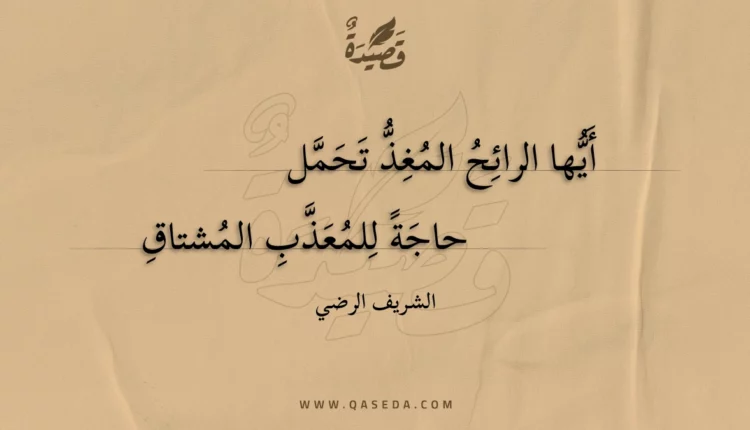 قَصِيْدَةٌ
أَيُّها الرائِحُ المُغِذُّ تَحَمَّل
حاجَةً لِلمُعَذَّبِ المُشتاقِ
الشريف الرضي
WWW.QASEDA.COM